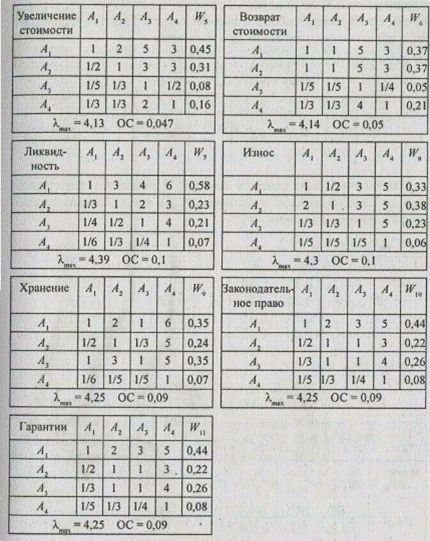 Увеличение стоимости A₁ A₂ A₃ A₄ W₅
A₁ 1 2 5 3 0,45
A₂ 1/2 1 3 3 0,31
A₃ 1/5 1/3 1 1/2 0,08
A₄ 1/3 1/3 2 1 0,16
λmax = 4,13 ОС = 0,047
Возврат стоимости A₁ A₂ A₃ A₄ W₆
A₁ 1 1 5 3 0,37
A₂ 1 1 5 3 0,37
A₃ 1/5 1/5 1 1/4 0,05
A₄ 1/3 1/3 4 1 0,21
λmax = 4,14 ОС = 0,05
Ликвид-
ность A₁ A₂ A₃ A₄ W₅
A₁ 1 3 4 6 0,58
A₂ 1/3 1 2 3 0,23
A₃ 1/4 1/2 1 4 0,21
A₄ 1/6 1/3 1/4 1 0,07
λmax = 4,39 ОС = 0,1
Износ A₁ A₂ A₃ A₄ W₈
A₁ 1 1/2 3 5 0,33
A₂ 2 1 3 5 0,38
A₃ 1/3 1/3 1 5 0,23
A₄ 1/5 1/5 1/5 1 0,06
λmax = 4,3 ОС = 0,1
Хранение A₁ A₂ A₃ A₄ W₉
A₁ 1 2 1 6 0,35
A₂ 1/2 1 1/3 5 0,24
A₃ 1 3 1 5 0,35
A₄ 1/6 1/5 1/5 1 0,07
λmax = 4,25 ОС = 0,09
Законодатель-
ное право A₁ A₂ A₃ A₄ W₁₀
A₁ 1 2 3 5 0,44
A₂ 1/2 1 1 3 0,22
A₃ 1/3 1 1 4 0,26
A₄ 1/5 1/3 1/4 1 0,08
λmax = 4,25 ОС = 0,09
Гарантии A₁ A₂ A₃ A₄ W₁₁
A₁ 1 2 3 5 0,44
A₂ 1/2 1 1 3 0,22
A₃ 1/3 1 1 4 0,26
A₄ 1/5 1/3 1/4 1 0,08
λmax = 4,25 ОС = 0,09